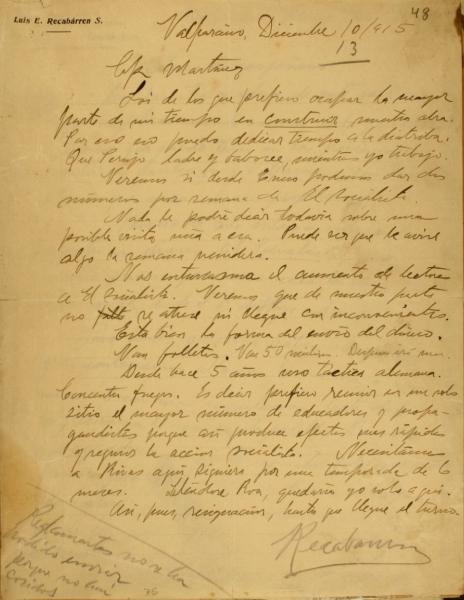 48
Luis E. Recabárren S.
Valparaíso, Diciembre 10/915
13
Martínez
Soi de los que prefiero ocupar la mayor
parte de mi tiempo en construir nuestra obra.
Por eso no puedo dedicar tiempo a la
Que ladre y mientras yo trabajo.
Veremos si desde Enero podemos dar dos
números por semana de El Socialista.
Nada le podré decir todavía sobre una
posible visita mía a esa. Puede ser que le avise
algo la semana venidera.
Nos entusiasma el aumento de lectores
a El Socialista. Veremos que de nuestra parte
no retrase ni llegue con inconvenientes.
Está bien la forma del envío del dinero.
Van folletos. Van 50 Después
Desde hace 5 años uso táctica alemana.
Concentrar fuegos. Es decir prefiero reunir en un solo
sitio el mayor número de educadores y propa-
gandistas porque así produce efectos mas rápidos
y seguros la acción socialista. Necesitamos
a Rivas aquí siquiera por una temporada de 6
meses. Roa, quedaría yo solo aquí.
Así, pues, resignación, hasta que llegue el turno.
Recabarren
Reglamentos no se ha
podido enviar
porque no hai
cosidos